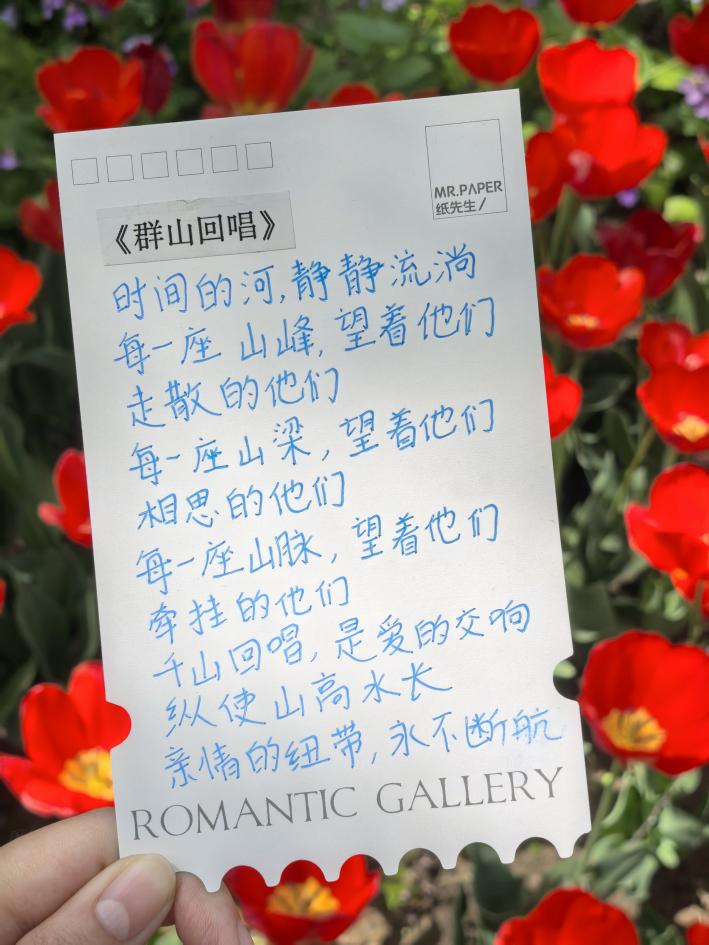 MR.PAPER
纸先生/
《群山回唱》
时间的河,静静流淌
每一座山峰,望着他们
走散的他们
每一座山梁,望着他们
相思的他们
每一座山脉,望着他们
牵挂的他们
千山回唱,是爱的交响
纵使山高水长
亲情的纽带,永不断航
ROMANTIC GALLERY